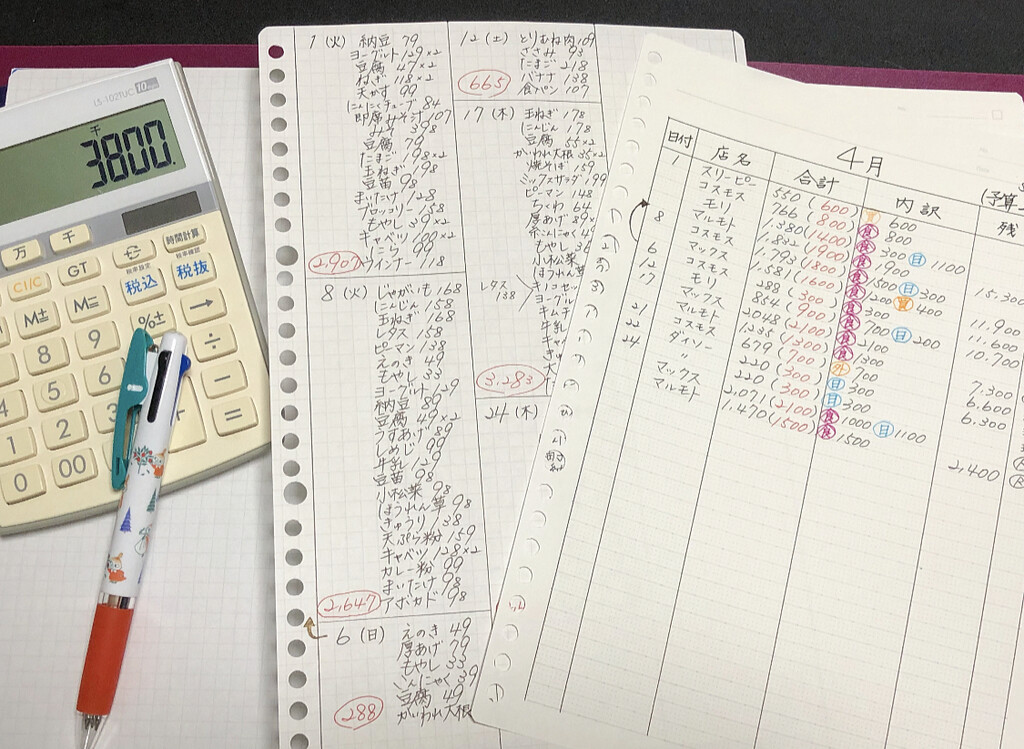 LS-102TUC
千
3800.
万
千
時間計算
C1/C
GT
税込
税抜
M±
M=
%±
→
8
9
÷
5
6
−
1
2
3
+
=
0
00
1 (火) 納豆 79
ヨーグルト 129×2
豆腐 47×2
ねぎ 118×2
天かす 99
にんにくチューブ 84
即席みそ汁 107
みそ 398
豆腐 79
たまご 198×2
玉ねぎ 198
豆苗 98
まいたけ 128
ブロッコリー 158
もやし 39×2
キャベツ 99
ウインナー 118
2,907
8 (火) じゃがいも 168
にんじん 158
玉ねぎ 168
レタス 158
ピーマン 138
えのき 49
もやし 33
ヨーグルト 129
納豆 89
豆腐 49×2
うすあげ 89
しめじ 99
牛乳 129
豆苗 98
小松菜 98
ほうれん草 98
きゅうり 138
天ぷら粉 159
キャベツ 128×2
カレー粉 99
まいたけ 98
アボカド 98
2,647
6 (日) えのき 49
厚あげ 79
もやし 33
こんにゃく 39
豆腐 49
かいわれ大根
288
12 (土) とりむね肉 109
ささみ 93
たまご 218
バナナ 138
食パン 107
665
17 (木) 玉ねぎ 178
にんじん 178
豆腐 55×2
かいわれ大根 35×2
焼そば 159
ミックスサラダ 199
ピーマン 148
ちくわ 64
厚あげ 89×
糸こんにゃく 49
もやし 36
小松菜
ほうれん
レタス 138
キリコセッ
ヨーグル
キムチ
牛乳
キャ
きゅ
大
3,283
24 (木)
4月
日付 店名 合計 内訳 (予算 残
1 スリーピー 550 (600) 600
コスモス 766 (800) 食 800
モリ 1,380 (1400) 食 300 日 1100
8 マルモト 1,832 (1900) 食 1900
コスモス 1,793 (1800) 食 1500 日 300 15,300
6 マックス 1,581 (1600) 食 1200 400
12 コスモス 288 (300) 食 300 11,900
17 モリ 854 (900) 食 700 日 200 11,600
マックス 2048 (2100) 食 2100 10,700
21 マルモト 1235 (1300) 食 1300
22 コスモス 679 (700) 外 700 7,300
24 ダイソー 220 (300) 日 300 6,600
〃 220 (300) 日 300 6,300
マックス 2,071 (2100) 食 1000 日 1100
マルモト 1,470 (1500) 食 1500
2,400